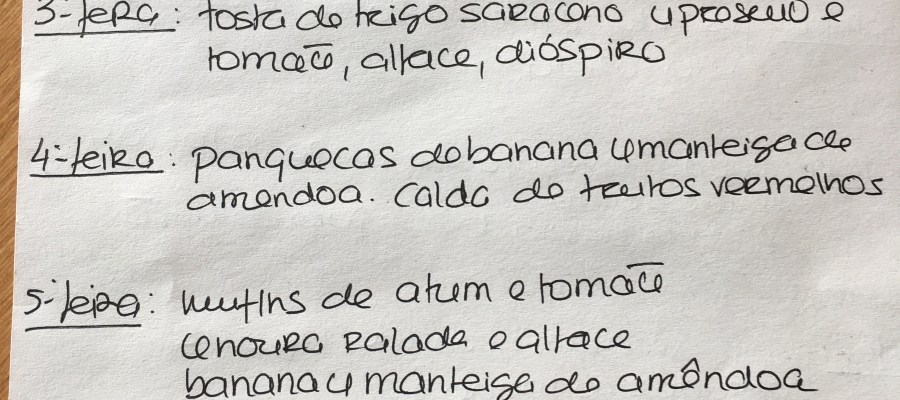 3ª-feira: tosta de trigo saraceno c/ presunto e
tomate, alface, dióspiro
4ª-feira: panquecas de banana c/ manteiga de
amendoa. Calda de frutos vermelhos
5ª-feira: muffins de atum e tomate
cenoura ralada e alface
banana c/ manteiga de amêndoa